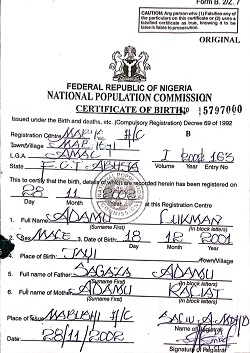 Form B. 2/Z. 7
CAUTION: Any person who (1) Falsifies any of
the particulars on this certificate or (2) uses a
falsified certificate as true, knowing it to be
false is liable to prosecution.
ORIGINAL
FEDERAL REPUBLIC OF NIGERIA
NATIONAL POPULATION COMMISSION
CERTIFICATE OF BIRTH No 5797000
Issued under the Birth and deaths, etc. (Compulsory Registration) Decree 69 of 1992
Registration Centre H/C B
Town/Village
L.G.A. AMAC I 163
State F.C.T. ABUJA Volume Year Entry No
This to certify that the birth, details of which are recorded herein has been registered on
28 11 2002 at this Registration Centre
Day Month Year
1. Full Name ADAMU LUKMAN
(Surname First) (In block letters)
2. Sex MALE 3. Date of Birth: 18 12 2001
Day Month Year
4. Place of Birth: Town/Village
5. Full name of Father: ADAMU
(Surname First) (In block letters)
6. Full name of Mother: ADAMU
(Surname First) (In block letters)
Place of Issue H/C
Name of Registrar
Date 28/11/2002
Signature of Registrar